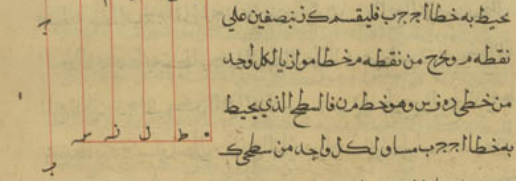 يحيط به خطا ا ج ج ب فليقسم ك ز بنصفين علي
نقطه م ويخرج من نقطه م خطا موازيا لكل واحد
من خطي ده و س وهو خط م ن فالسطح الذي يحيط
به خطا ا ج ج ب مساو لكل واحد من سطحي ك
ج
ب
ه ط ل ن س